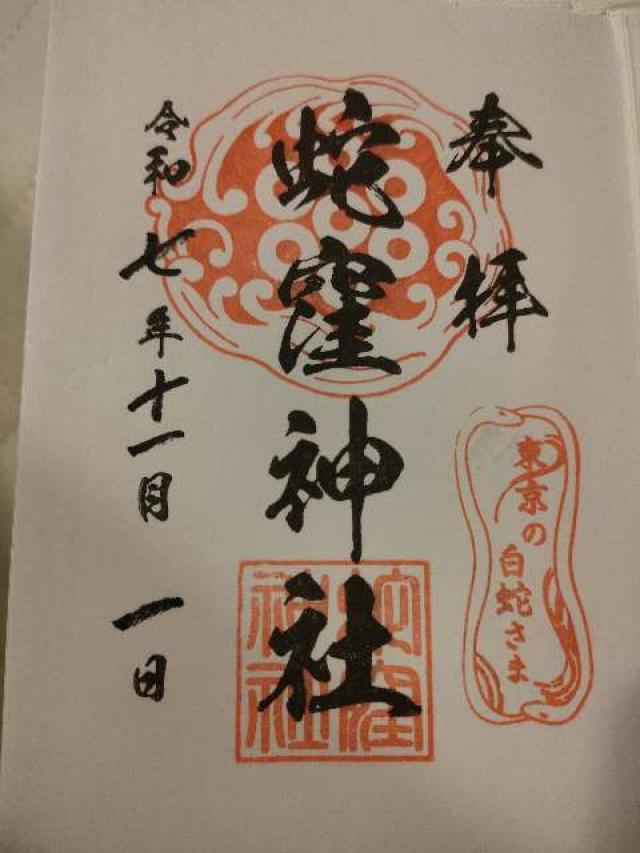 奉拝
東京の白蛇さま
蛇窪神社
蛇窪
神社
令和七年十一月一日